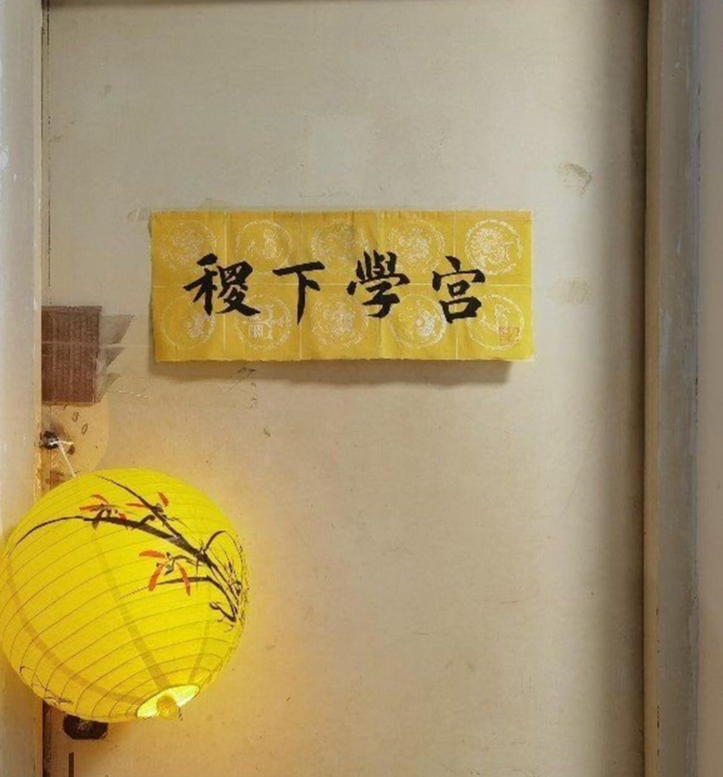 稷下學宮